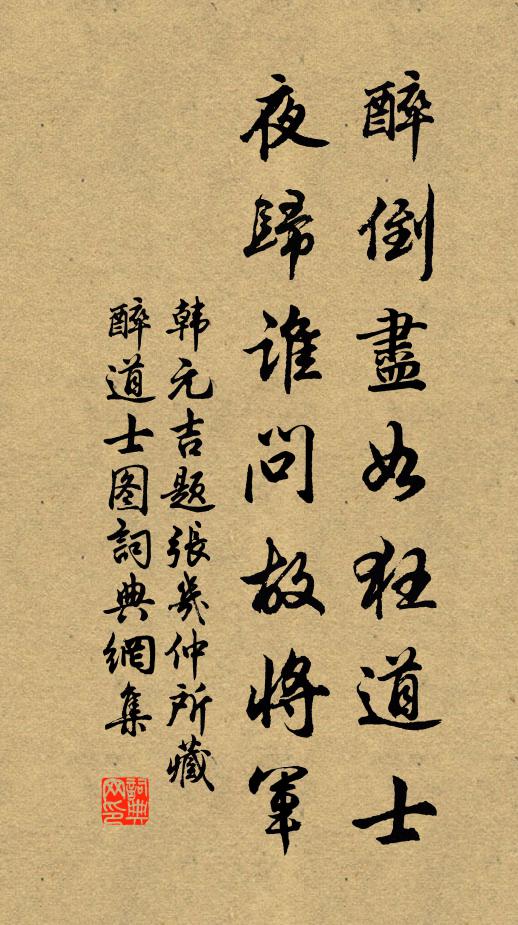 醉倒盡如狂道士
夜歸誰問故將軍
韩元吉题張幾仲所藏
醉道士图詞典網集
詞典
网印